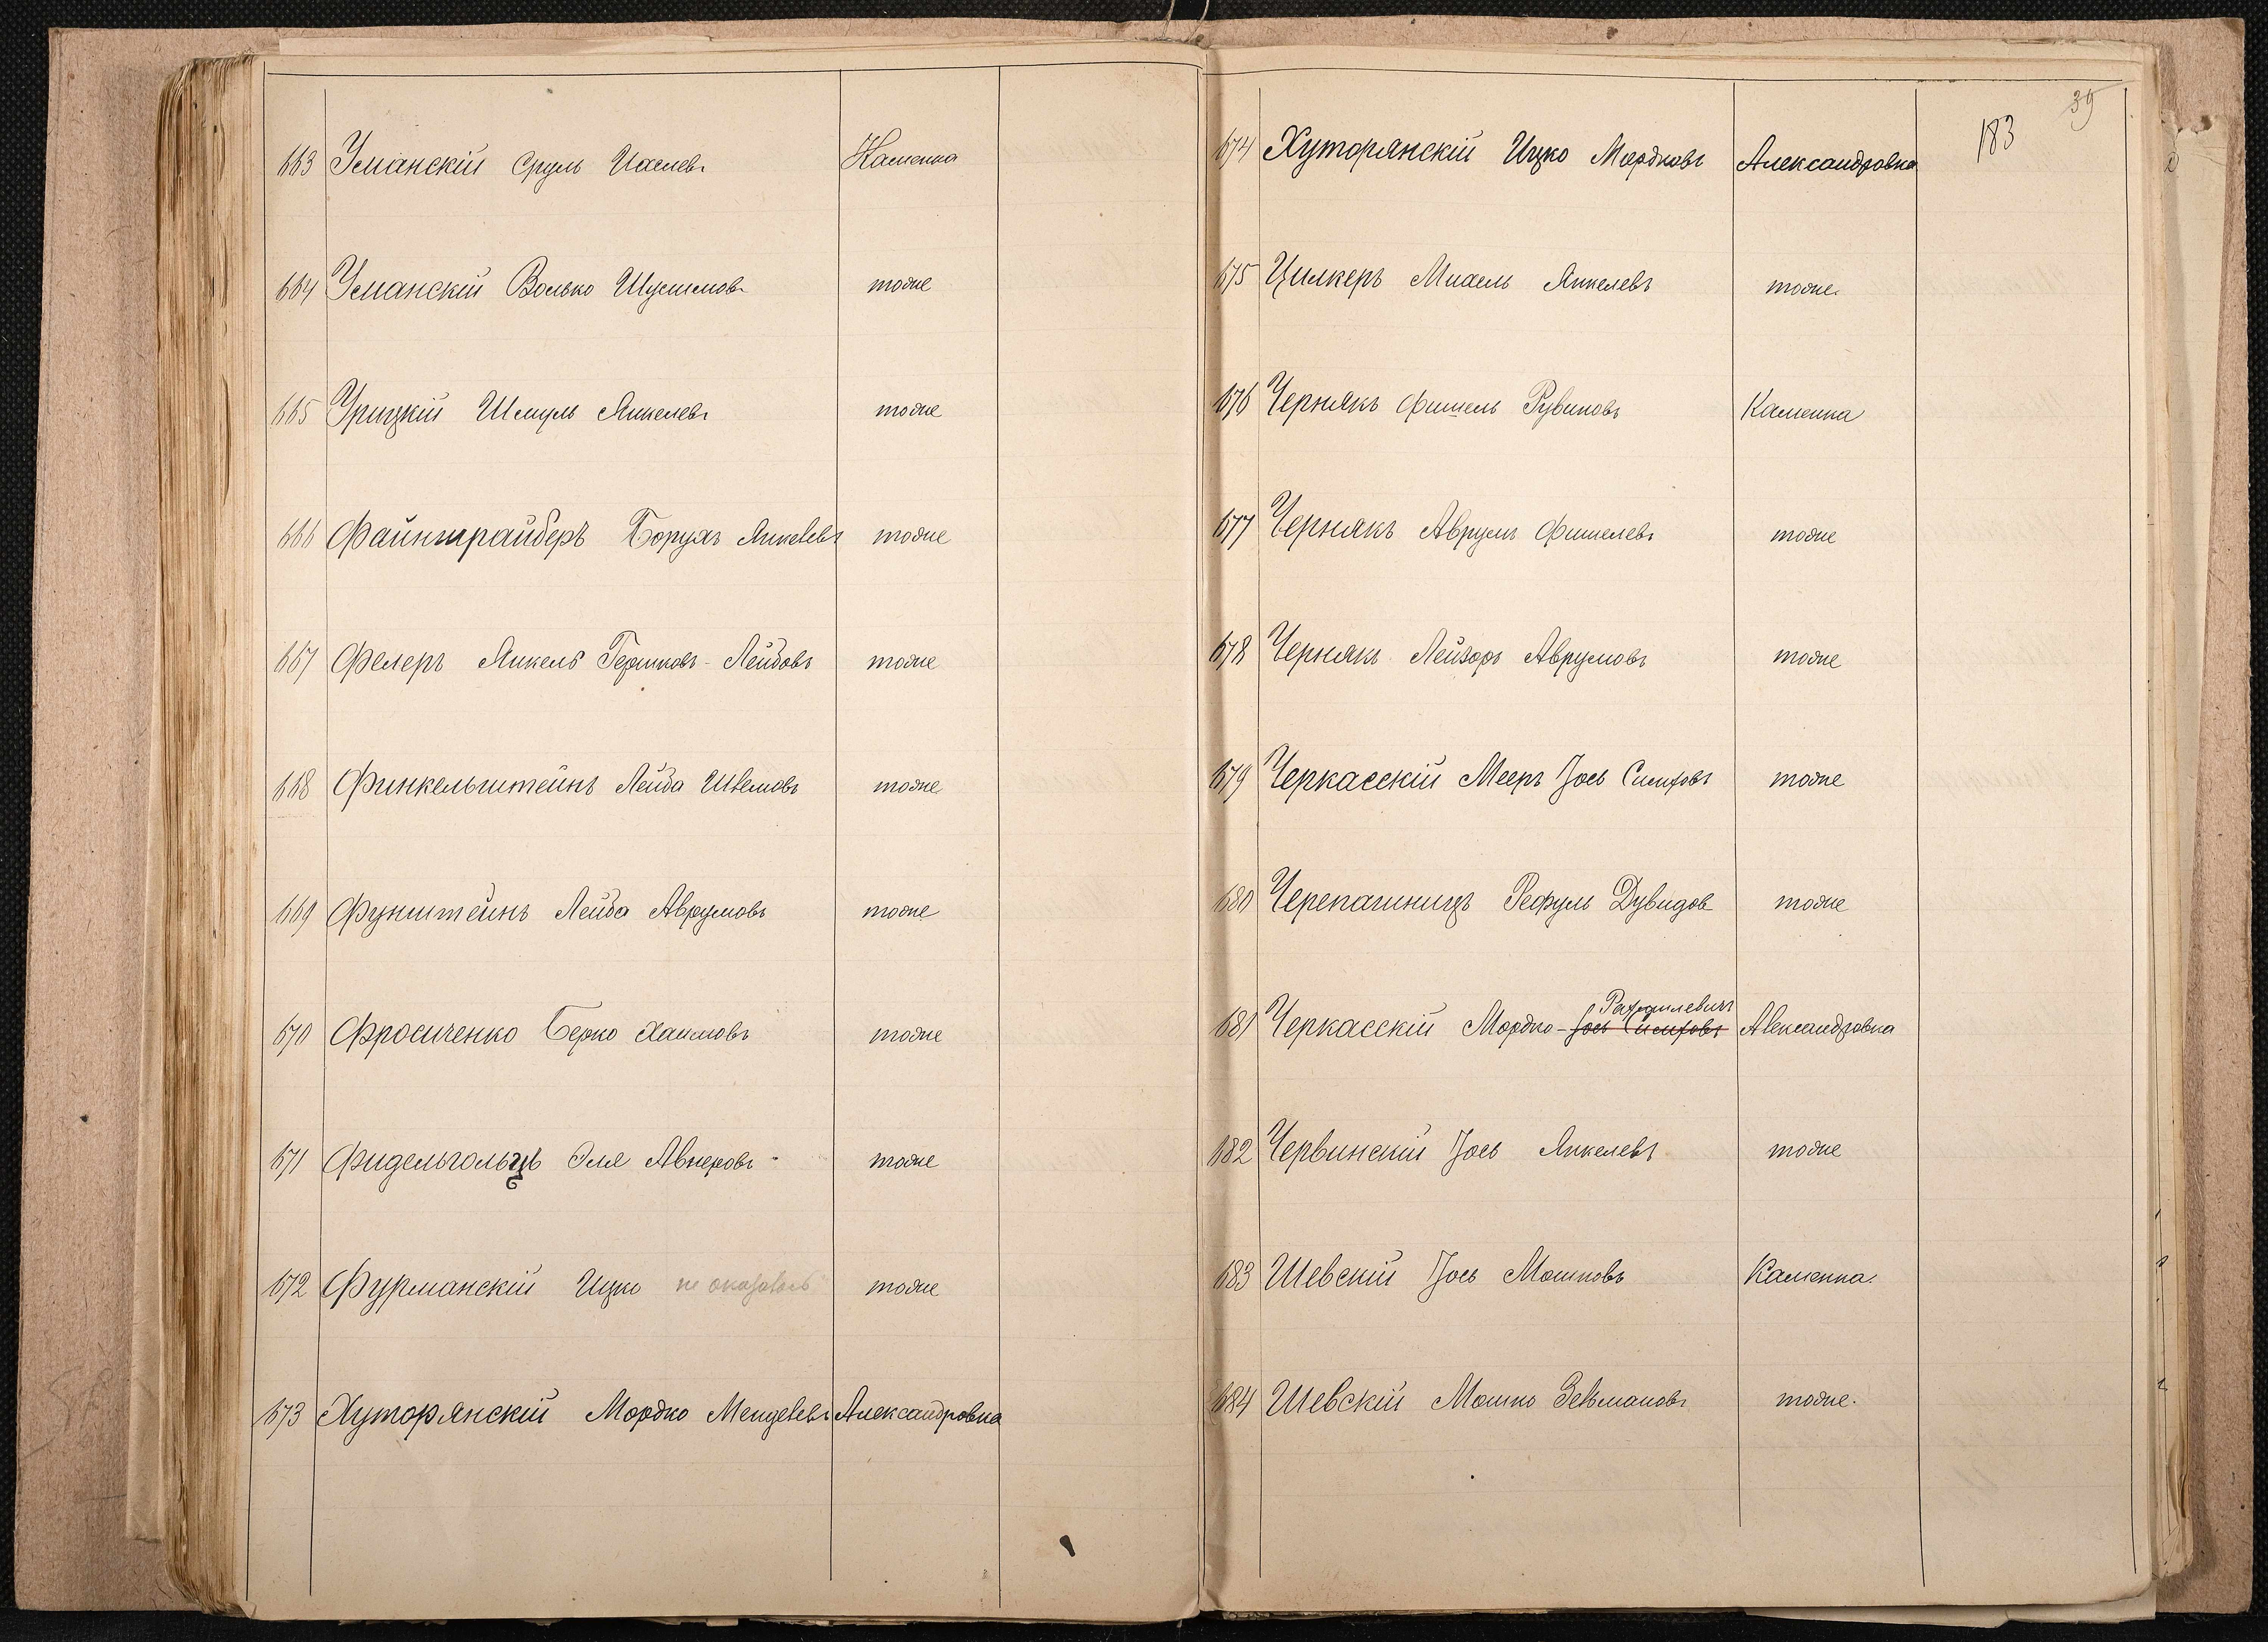 663 Уманскій Сруль Иоелевъ Каменка
664 Уманскій Волько Шулимовъ тоже
665 Урицкій Шмуль Янкелевъ тоже
666 Файнтрайберъ Борухъ Янкелевъ тоже
667 Фелеръ Янкель Гершковъ-Лейбовъ тоже
668 Финкельштейнъ Лейба тоже
669 Фунштейнъ Лейба Аврумовъ тоже
670 Фросиченко Берко Хаимовъ тоже
671 Фидельгольцъ Эля Авнеровъ тоже
672 Фурманскій Ицко не оказалось тоже
673 Хуторянскій Мордко Менделевъ Александровка
39
183
674 Хуторянскій Ицко Мордковъ Александровка
675 Цилкеръ Михель Янкелевъ тоже.
676 Чернякъ Фишель Рувиновъ Каменка
677 Чернякъ Аврумъ Фишелевъ тоже
678 Чернякъ Лейзоръ Аврумовъ тоже
679 Черкасскій Мееръ Іось Симховъ тоже
680 Черепашницъ Рефуль Дувидов тоже
Рахмилевичъ
681 Черкасскій Мордко-Іось Симховъ Александровка
682 Червинскій Іось Янкелевъ тоже
683 Шевскій Іось Мошковъ Каменка.
684 Шевскій Мошко Зельмановъ тоже.